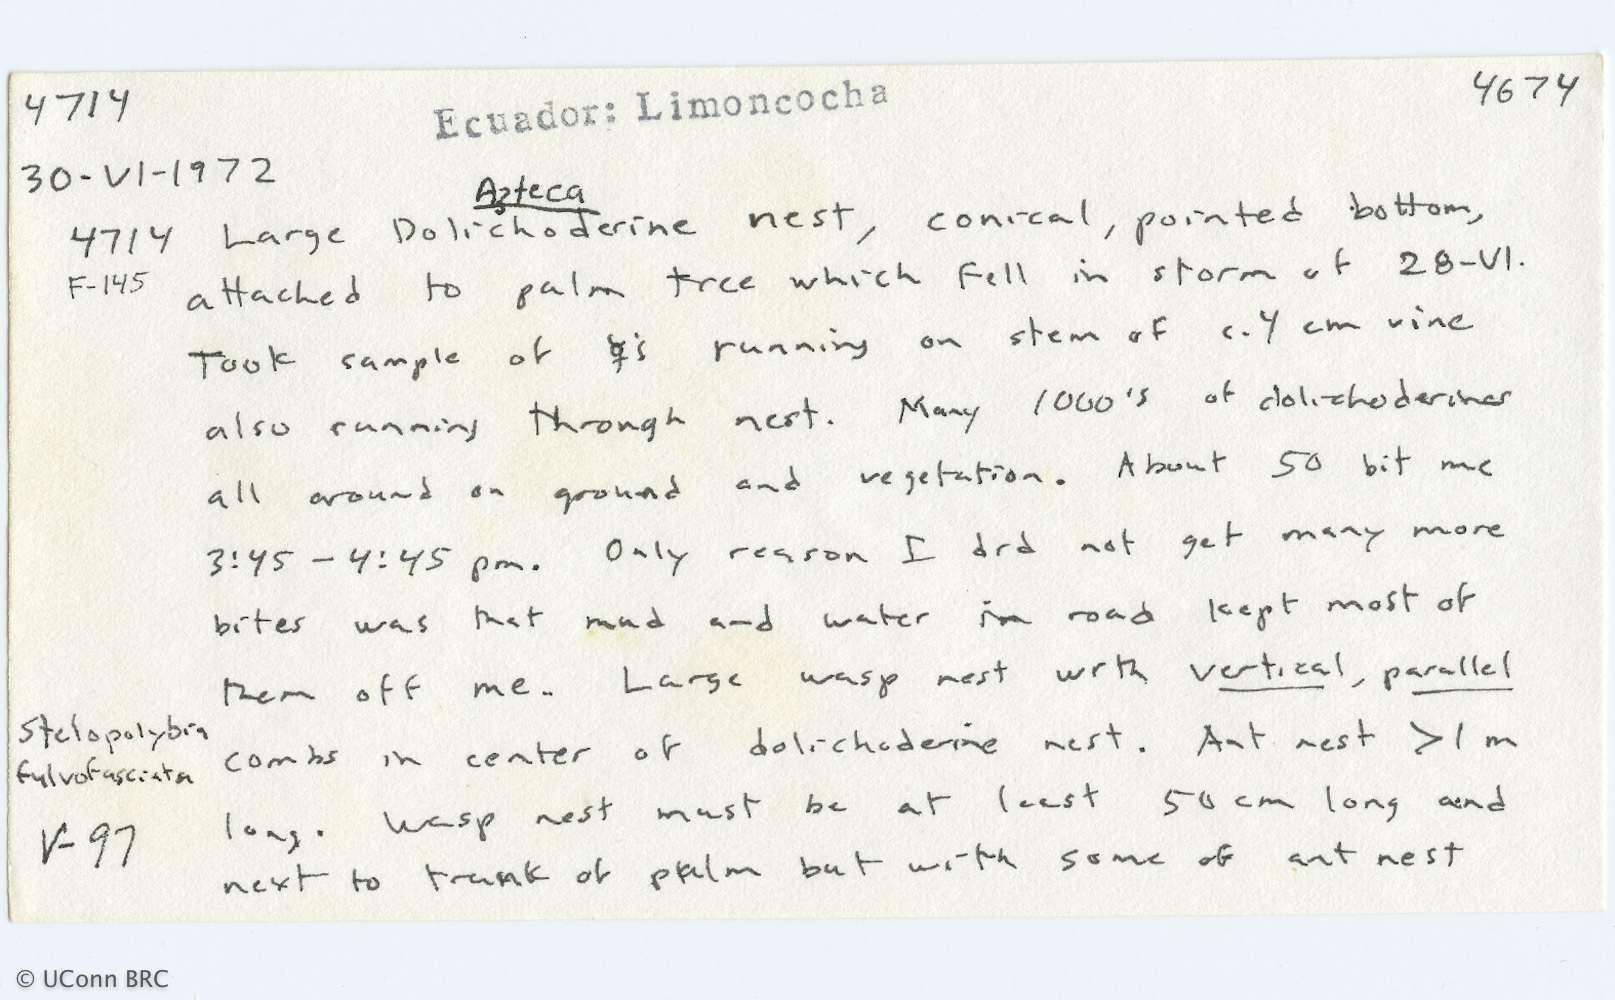 4714 Ecuador: Limoncocha 4674
30-VI-1972
Azteca
4714 Large Dolichoderine nest, conical, pointed bottom,
F-145 attached to palm tree which fell in storm of 28-VI.
Took sample of ☿'s running on stem of c. 4 cm vine
also running through nest. Many 1000's of dolichoderines
all around on ground and vegetation. About 50 bit me
3:45 - 4:45 pm. Only reason I did not get many more
bites was that mud and water in road kept most of
them off me. Large wasp nest with vertical, parallel
Stelopolybia combs in center of dolichoderine nest. Ant nest >1 m
fulvofasciata
long. Wasp nest must be at least 50 cm long and
V-97
next to trunk of palm but with some of ant nest
© UConn BRC